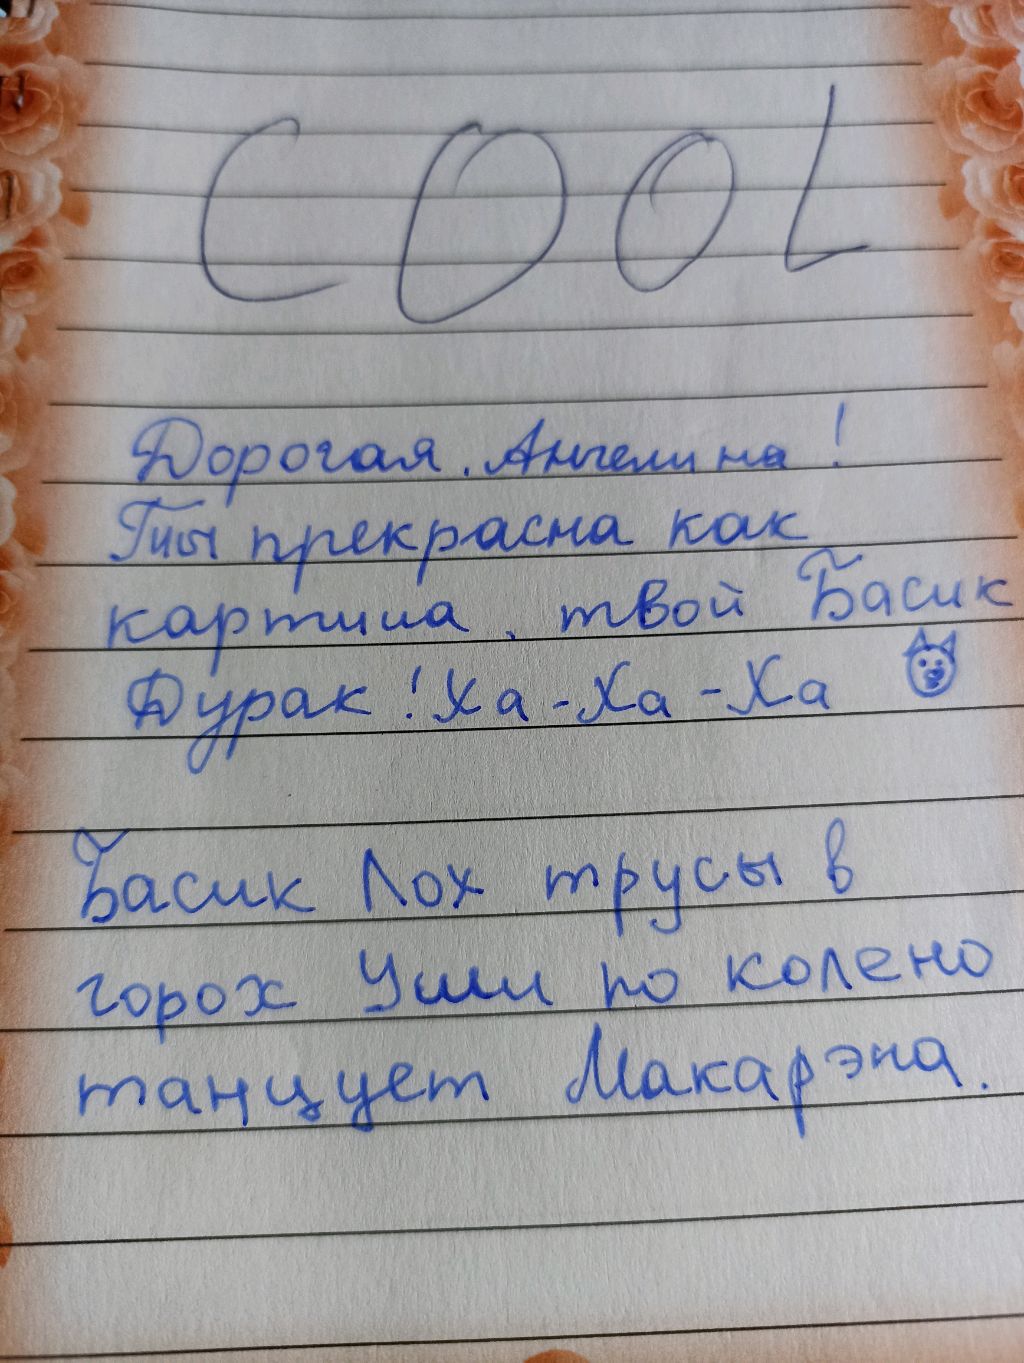 COOL
Дорогая, Ангелина!
Ты прекрасна как
картина, твой Басик
Дурак! Ха-Ха-Ха
Басик Лох трусы в
горох Уши по колено
танцует Макарэна.